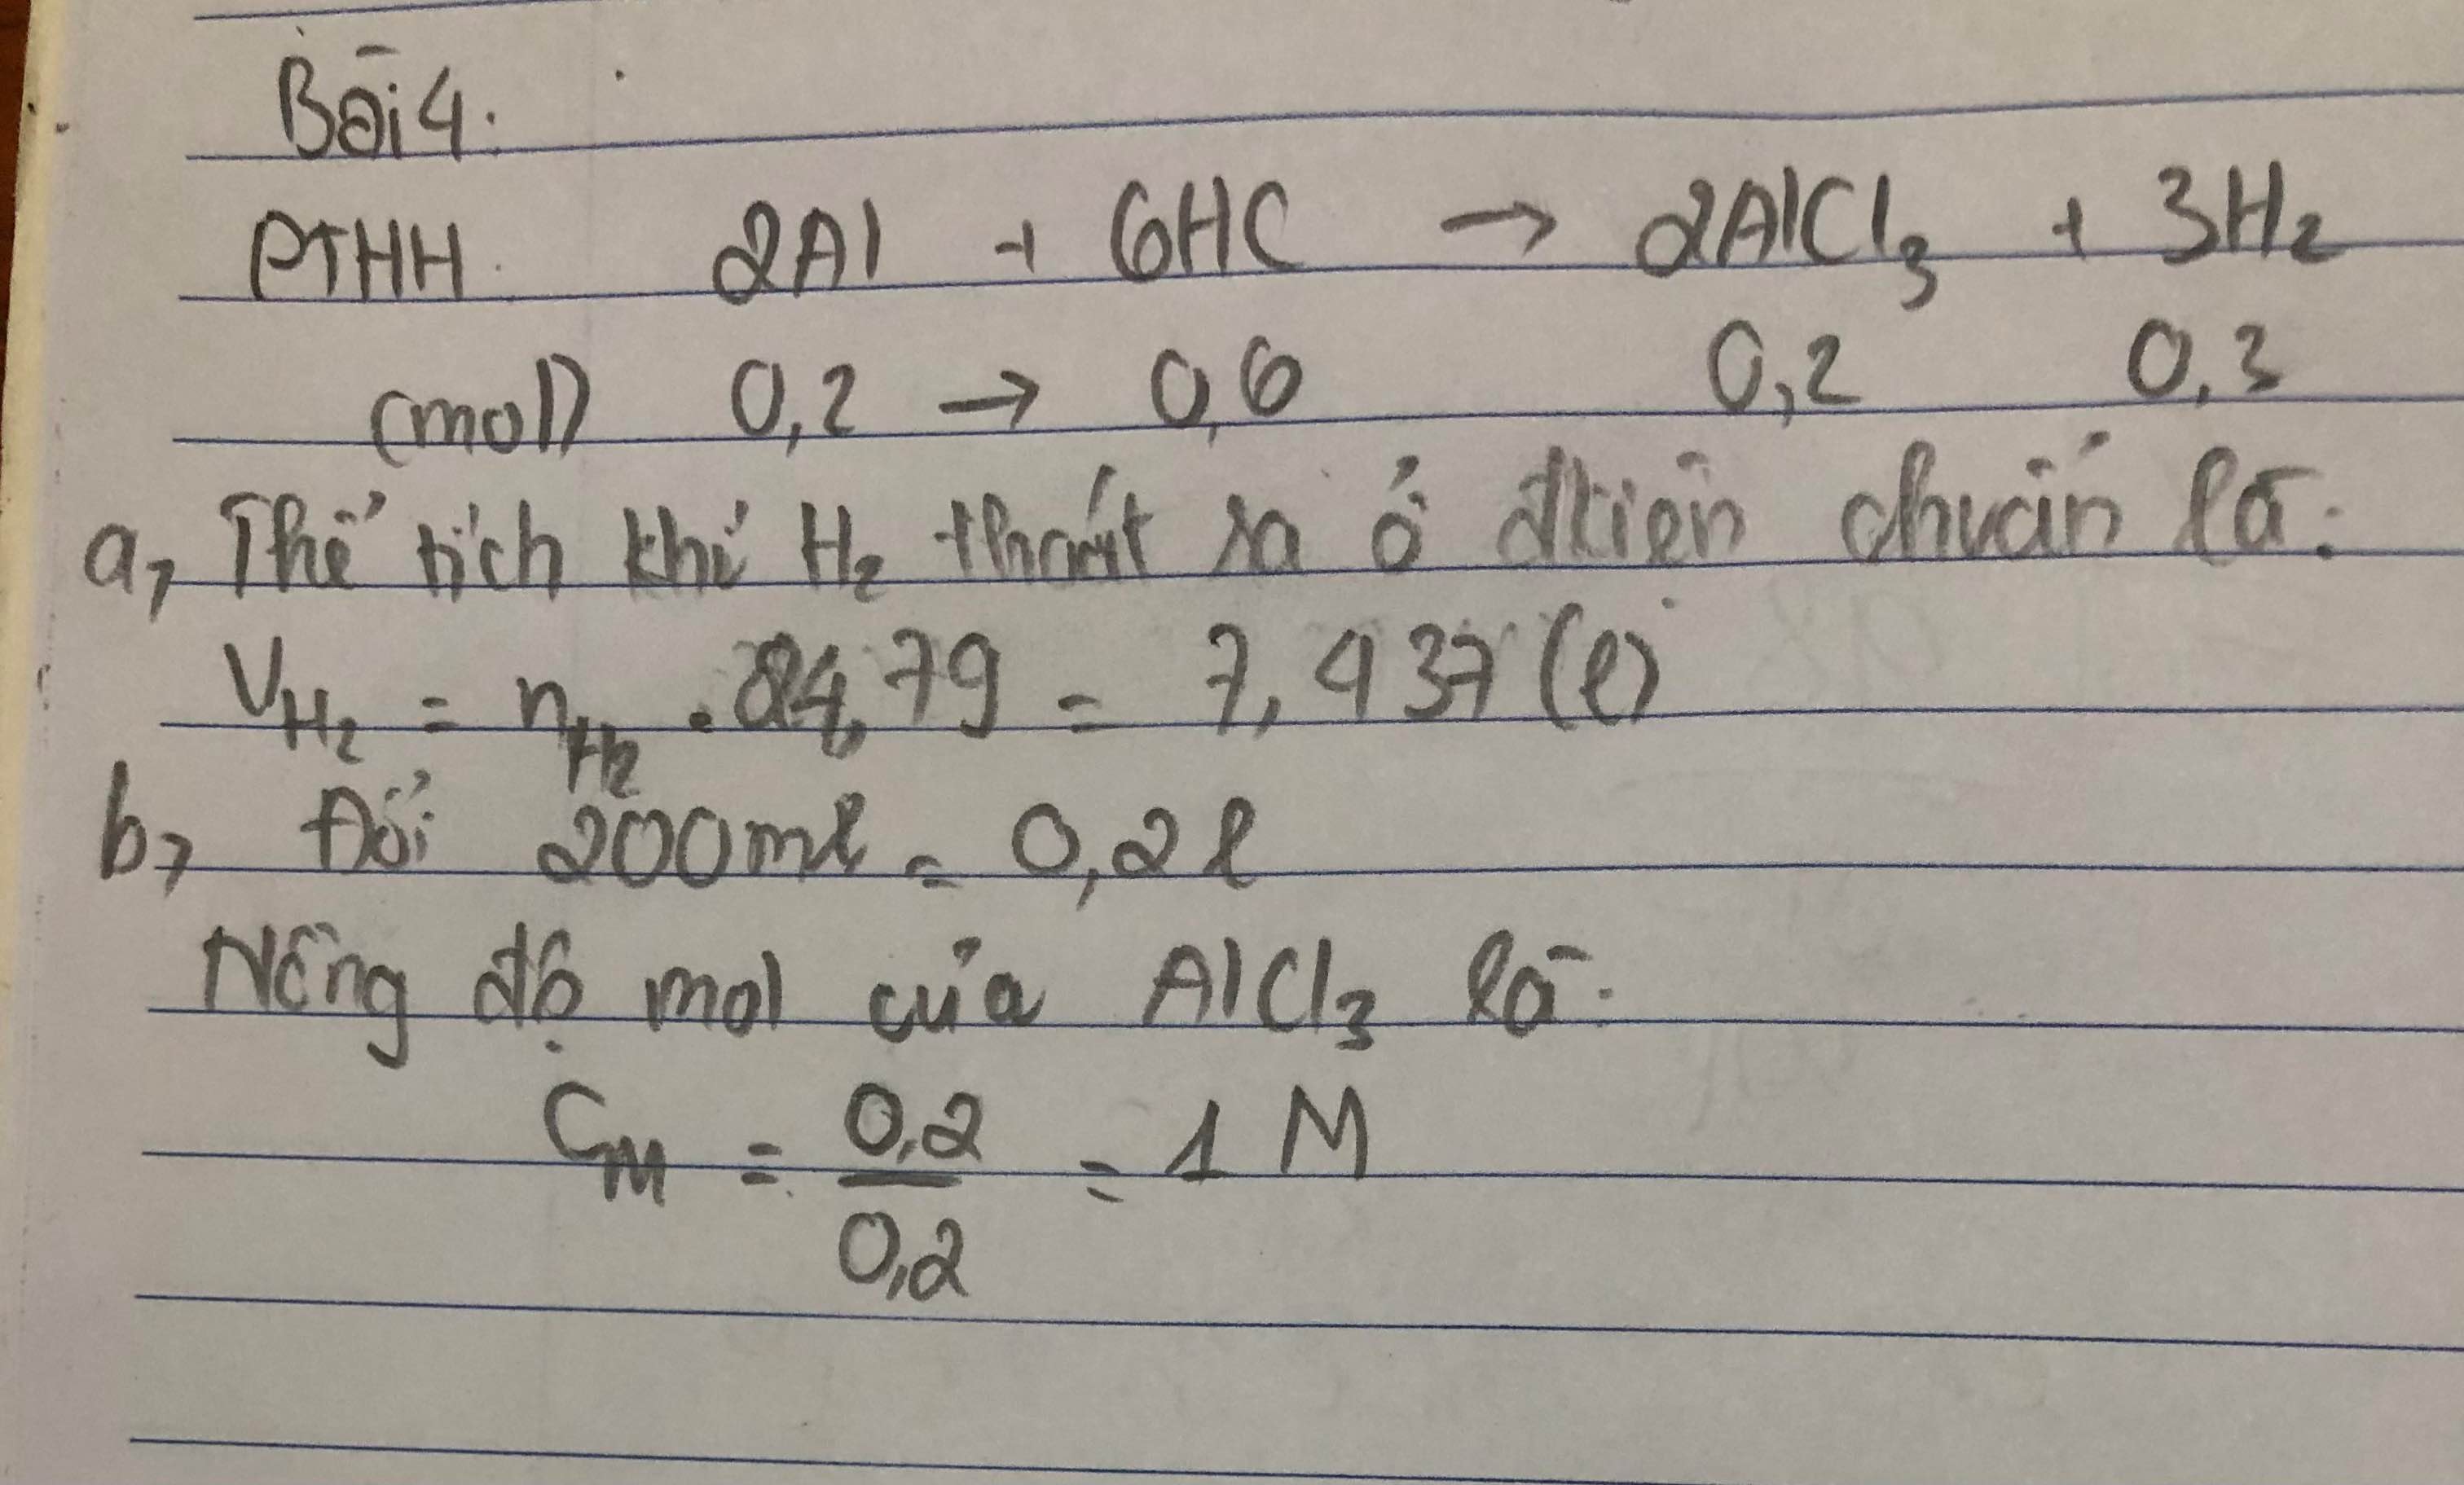 Bài 4:
PTHH 2Al + 6HC → 2AlCl₃ + 3H₂
(mol) 0,2 → 0,6 0,2 0,3
a, Thể tích khí H₂ thoát ra ở đkiện chuẩn là:
V_H₂ = n_H₂ . 24,79 = 7,437 (l)
b, Đổi 200ml = 0,2l
Nồng độ mol của AlCl₃ là:
C_M = 0,2 / 0,2 = 1 M